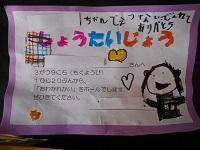 ちゃんてぇつないでくれて
ありがとう
しょうたいじょう
さんへ
3がつ9にち(もくようび)
10じ20ぷんから、
「おわかれかい」をホールでします。
ぜひきてください。